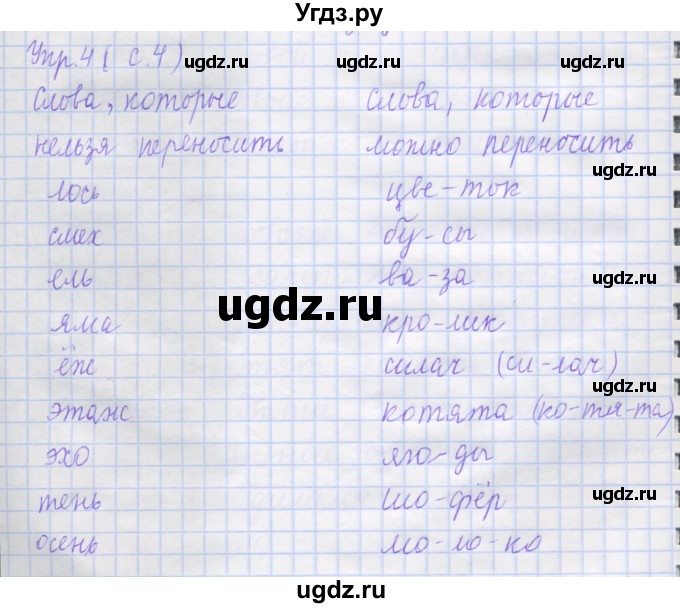 Угдз.ру
Упр.4 (с.4)
Слова, которые нельзя переносить
лось
смех
ель
яма
ёж
этаж
эхо
тень
осень
Слова, которые можно переносить
цве-ток
бу-сы
ва-за
кро-лик
силач (си-лач)
котята (ко-тя-та)
яго-ды
шо-фёр
мо-ло-ко
ugdz.ru
ugdz.ru
ugdz.ru
ugdz.ru
ugdz.ru
ugdz.ru
ugdz.ru
ugdz.ru
ugdz.ru
ugdz.ru
ugdz.ru